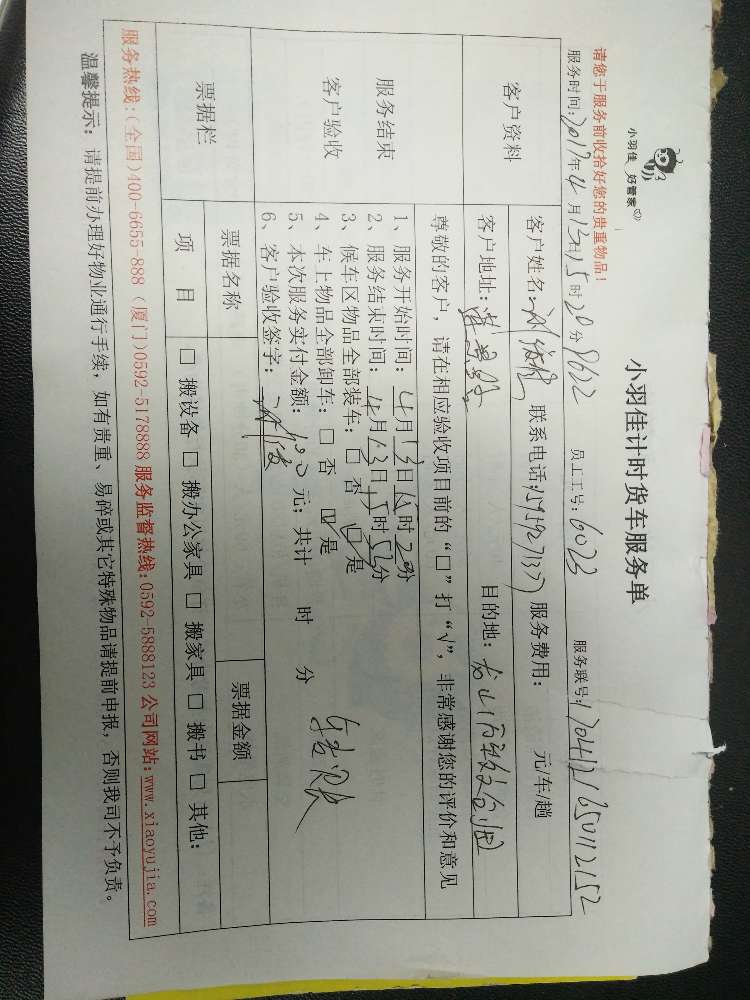 小羽佳 好管家
小羽佳计时货车服务单
请您于服务前收拾好您的贵重物品!
服务时间:2017年4月13日15时20分 8622 员工工号:6023 服务联号:1704121650112152
客户资料
客户姓名: 联系电话:15959271377 服务费用: 元/车/趟
客户地址: 目的地:
服务结束
客户验收
尊敬的客户,请在相应验收项目前的“口”打“√”,非常感谢您的评价和意见
1、服务开始时间:4月13日15时20分
2、服务结束时间:4月13日15时52分
3、候车区物品全部装车:□ 否 ☑ 是
4、车上物品全部卸车:□ 否 ☑ 是
5、本次服务实付金额: 元;共计 时 分
6、客户验收签字:
票据栏
票据名称 票据金额
项 目 □ 搬设备 □ 搬办公家具 □ 搬家具 □ 搬书 □ 其他:
服务热线:(全国)400-6655-888 (厦门)0592-5178888 服务监督热线:0592-5888123 公司网站:www.xiaoyujia.com
温馨提示:请提前办理好物业通行手续,如有贵重、易碎或其它特殊物品请提前申报,否则我司不予负责。